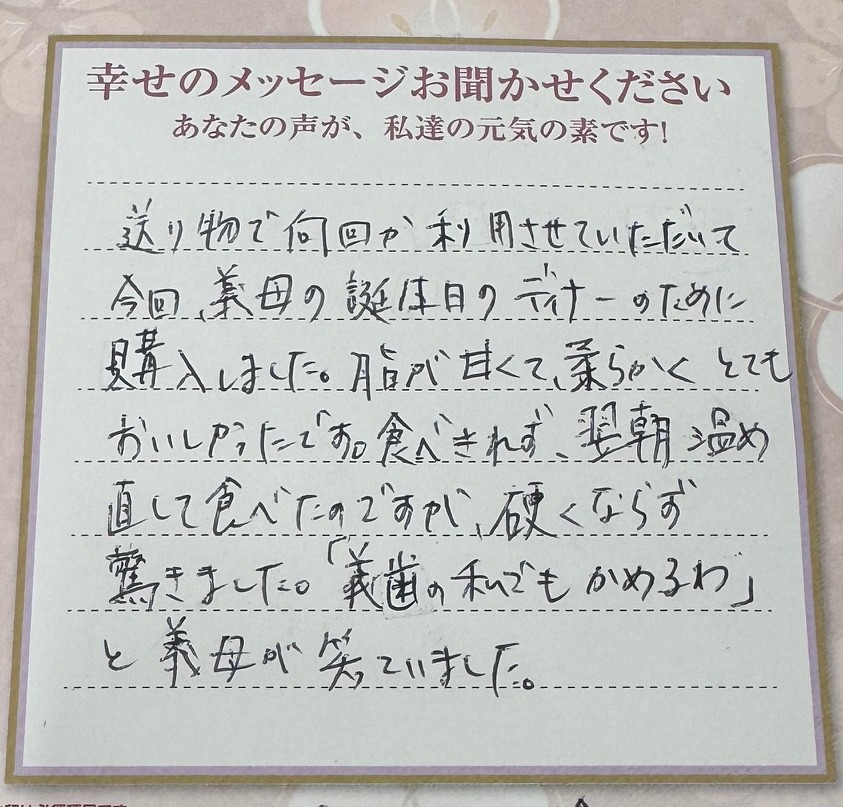 幸せのメッセージお聞かせください
あなたの声が、私達の元気の素です!
送り物で何回か利用させていただいて
今回、義母の誕生日のディナーのために
購入しました。脂が甘くて、柔らかく とても
おいしかったです。食べきれず、翌朝 温め
直して食べたのですが、硬くならず
驚きました。「義歯の私でも かめるわ」
と義母が笑っていました。